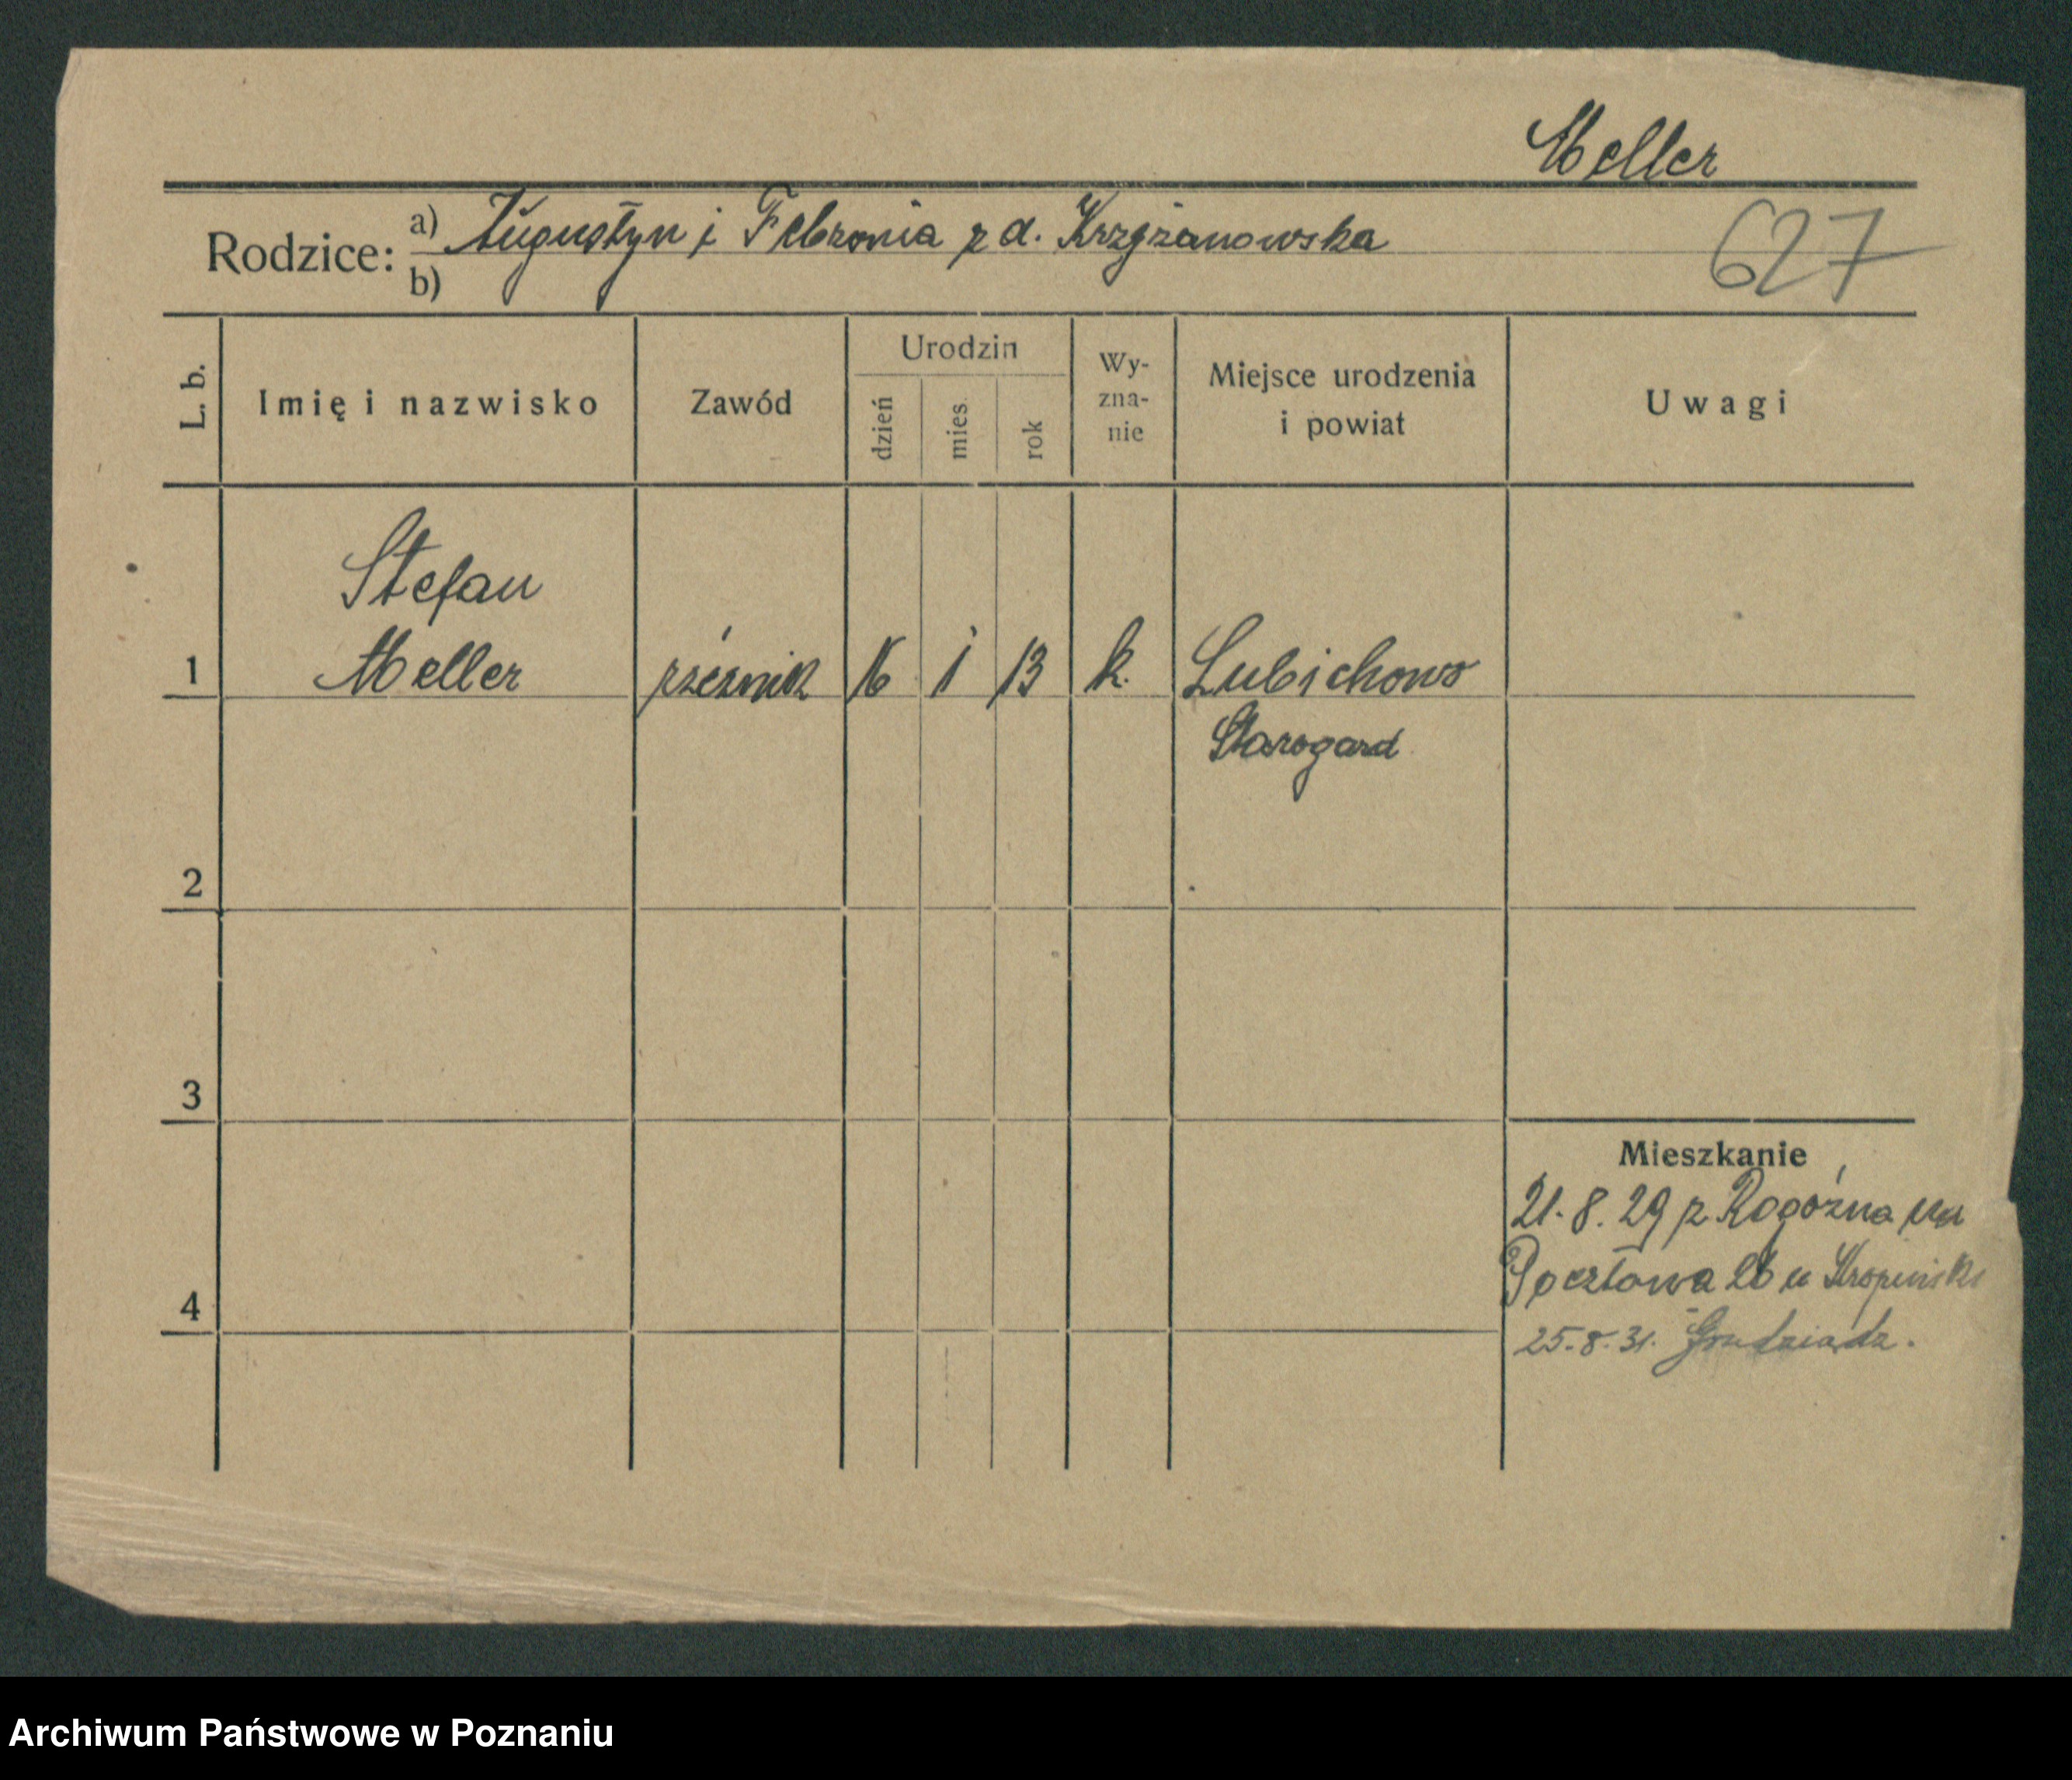 Meller
Rodzice: a) Augustyn i Febronia z d. Krzyżanowska
b)
627
L. b. Imię i nazwisko Zawód Urodzin dzień mies. rok Wy-zna-nie Miejsce urodzenia i powiat Uwagi
Stefan
1 Meller rzeźnik 16 1 13 k. Lubichowo
Starogard
2
3
Mieszkanie
21.8.29 z Rogoźna na
4 Pocztowa u
25.8.31. Grudziądz.
Archiwum Państwowe w Poznaniu